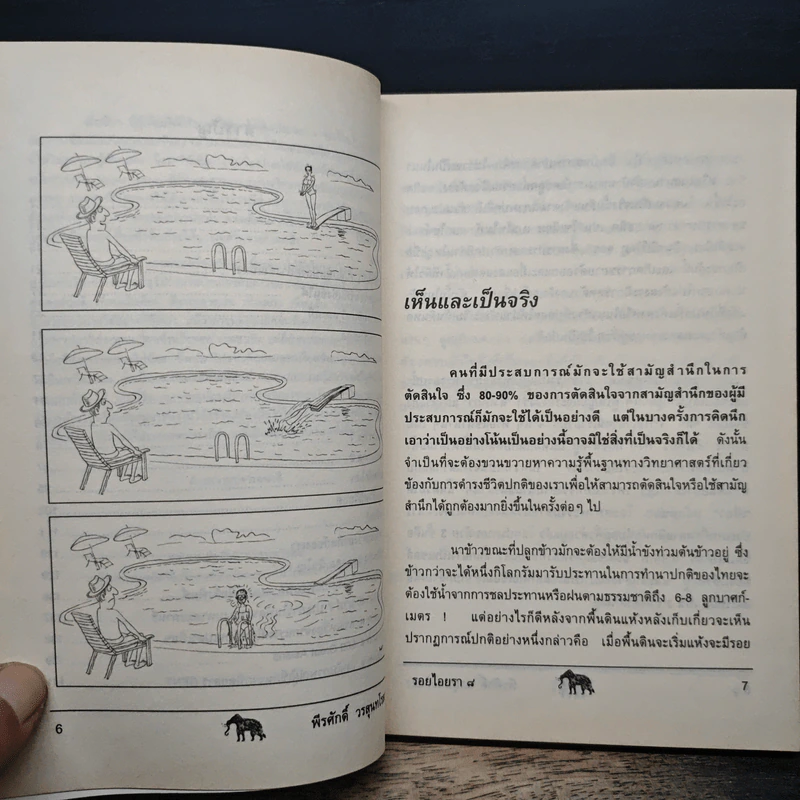 6
พีรศักดิ์ วรสุนทโร
เห็นและเป็นจริง
คนที่มีประสบการณ์มักจะใช้สามัญสำนึกในการ
ตัดสินใจ ซึ่ง 80-90% ของการตัดสินใจจากสามัญสำนึกของผู้มี
ประสบการณ์ก็มักจะใช้ได้เป็นอย่างดี แต่ในบางครั้งการคิดนึก
เอาว่าเป็นอย่างโน้นเป็นอย่างนี้อาจมิใช่สิ่งที่เป็นจริงก็ได้ ดังนั้น
จำเป็นที่จะต้องขวนขวายหาความรู้พื้นฐานทางวิทยาศาสตร์ที่เกี่ยว
ข้องกับการดำรงชีวิตปกติของเราเพื่อให้สามารถตัดสินใจหรือใช้สามัญ
สำนึกได้ถูกต้องมากยิ่งขึ้นในครั้งต่อๆ ไป
นาข้าวขณะที่ปลูกข้าวมักจะต้องให้มีน้ำขังท่วมต้นข้าวอยู่ ซึ่ง
ข้าวกว่าจะได้หนึ่งกิโลกรัมมารับประทานในการทำนาปกติของไทยจะ
ต้องใช้น้ำจากการชลประทานหรือฝนตามธรรมชาติถึง 6-8 ลูกบาศก์-
เมตร ! แต่อย่างไรก็ดีหลังจากพื้นดินแห้งหลังเก็บเกี่ยวจะเห็น
ปรากฏการณ์ปกติอย่างหนึ่งกล่าวคือ เมื่อพื้นดินจะเริ่มแห้งจะมีรอย
รอยไอยรา ๘
7